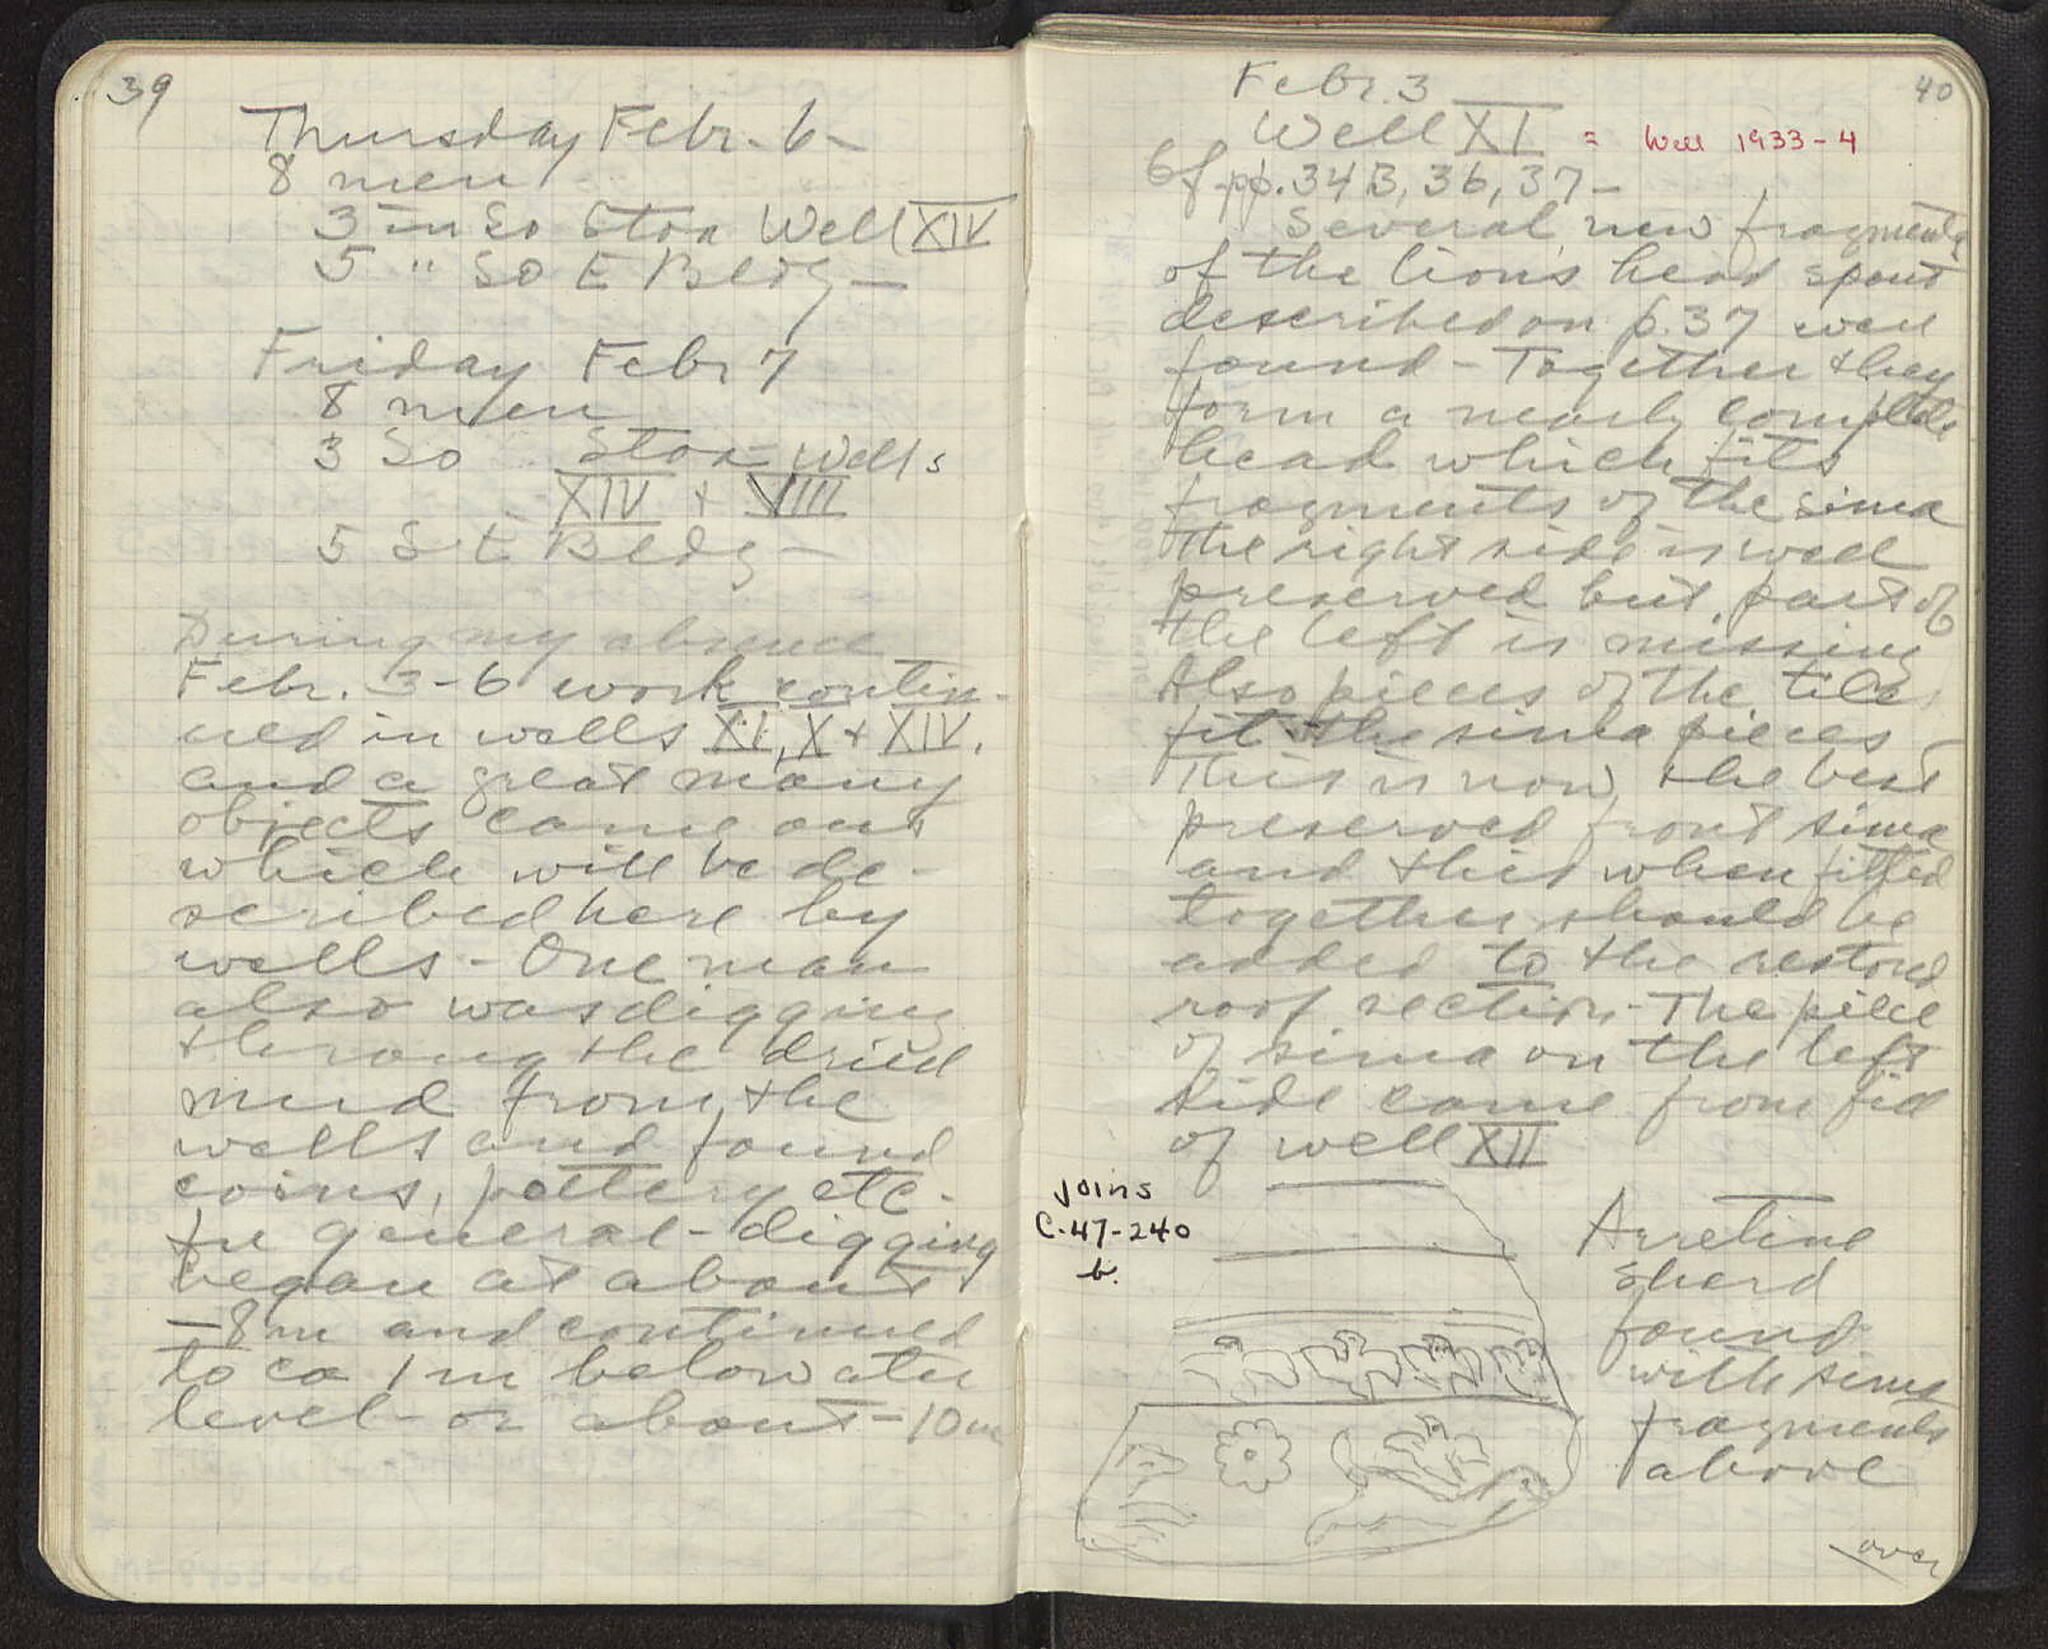 39
Thursday Febr. 6 -
8 men
3 in So Stoa Well XIV
5 " So E Bldg -
Friday Febr 7
8 men
3 So Stoa - Wells
XIV + VIII
5 S E Bldg -
During my absence
Febr. 3-6 work contin-
ued in wells XI, X + XIV,
and a great many
objects came out
which will be de-
scribed here by
wells - One man
also was digging
throug the dried
mud from the
wells and found
coins, pottery etc -
In general - digging
began at about
- 8m and continued
to ca 1m below ater
level - or about - 10m
40
Febr. 3
Well XI = Well 1933-4
Cf. pp. 34B, 36, 37 -
Several new fragments
of the lion's head spout
described on p. 37 were
found - Together they
form a nearly complete
head which fits
fragments of the sima
the right side is well
preserved but part of
the left is missing
Also pieces of the tile
fit the sima pieces
This is now the best
preserved front sima
and this when fitted
together should be
added to the restored
roof section - The piece
of sima on the left
side came from fill
of well XII
joins
C-47-240
b.
Arretine
sherd
found
with sima
fragments
above
over